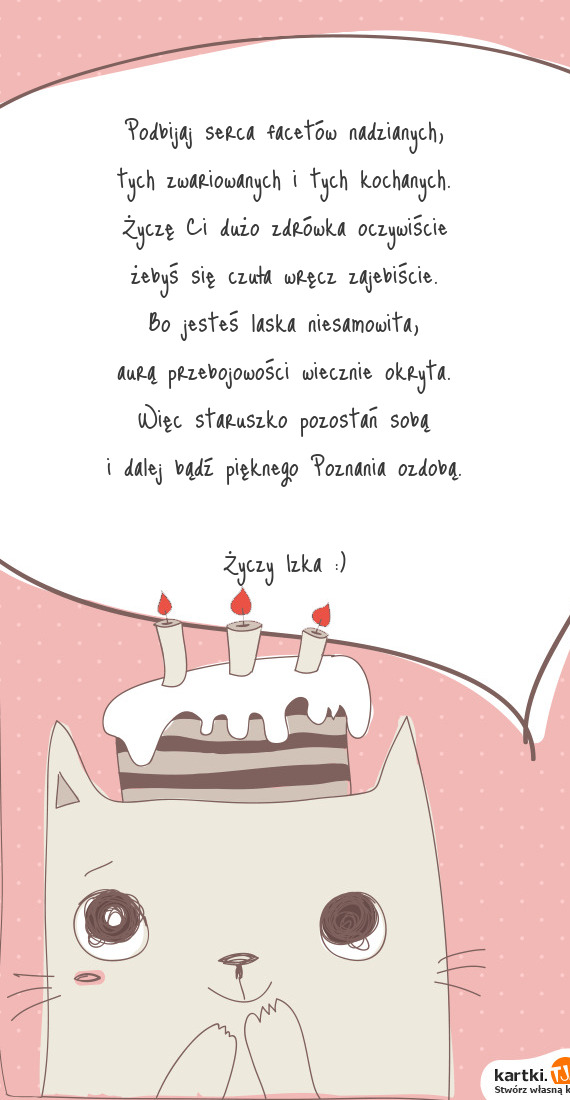 Podbijaj serca facetów nadzianych,
tych zwariowanych i tych kochanych.
Życzę Ci dużo zdrówka oczywiście
żebyś się czuła wręcz zajebiście.
Bo jesteś laska niesamowita,
aurą przebojowości wiecznie okryta.
Więc staruszko pozostań sobą
i dalej bądź pięknego Poznania ozdobą.
Życzy Izka :)
kartki.TJ
Stwórz własną k